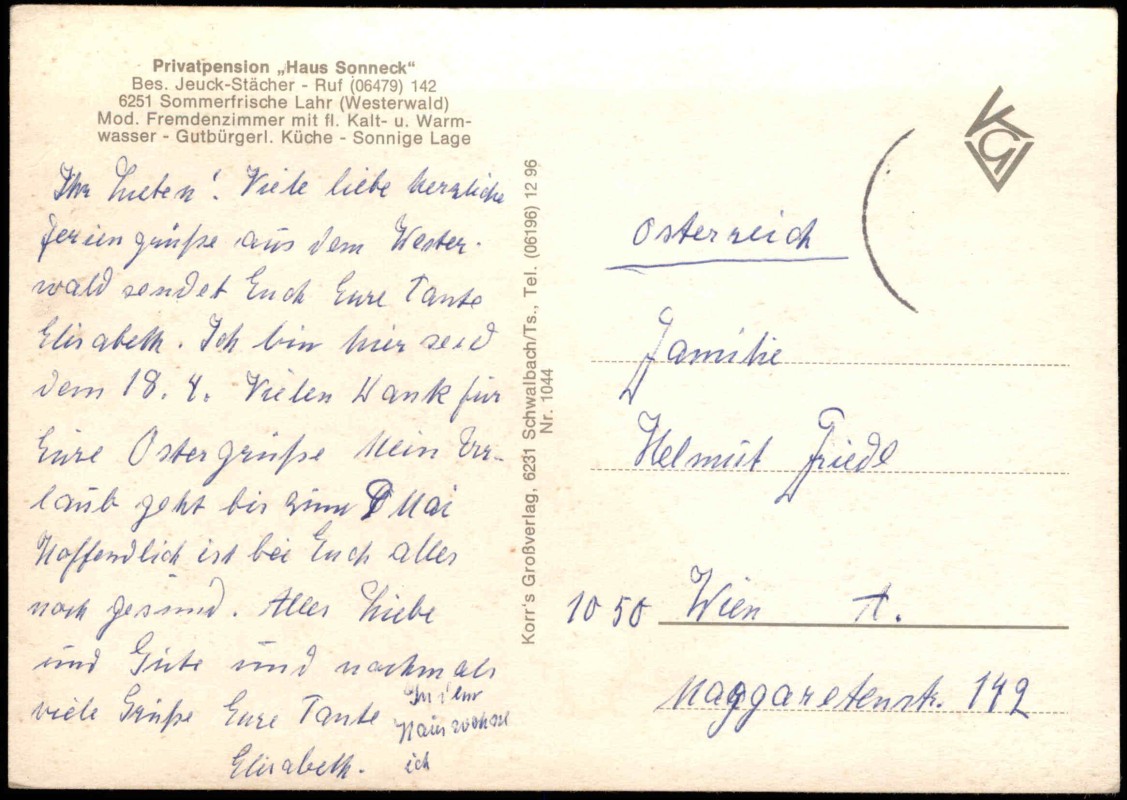 Privatpension „Haus Sonneck“
Bes. Jeuck-Stächer - Ruf (06479) 142
6251 Sommerfrische Lahr (Westerwald)
Mod. Fremdenzimmer mit fl. Kalt- u. Warm-
wasser - Gutbürgerl. Küche - Sonnige Lage
Ihr Lieben! Viele liebe herzliche
Feriengrüße aus dem Wester-
wald sendet Euch Eure Tante
Elisabeth. Ich bin hier seid
dem 18. 4. Vielen Dank für
Eure Ostergrüße Mein Ur-
laub geht bis zum Mai
Hoffendlich ist bei Euch alles
noch gesund. Alles Liebe
und Gute und nochmals
viele Grüße Eure Tante
Elisabeth.
In
Haus wohne
ich
Korr's Großverlag, 6231 Schwalbach/Ts., Tel. (06196) 12 96
Nr. 1044
KGV
Österreich
Familie
Helmut Friedl
1050 Wien A.
Maggaretenstr. 142